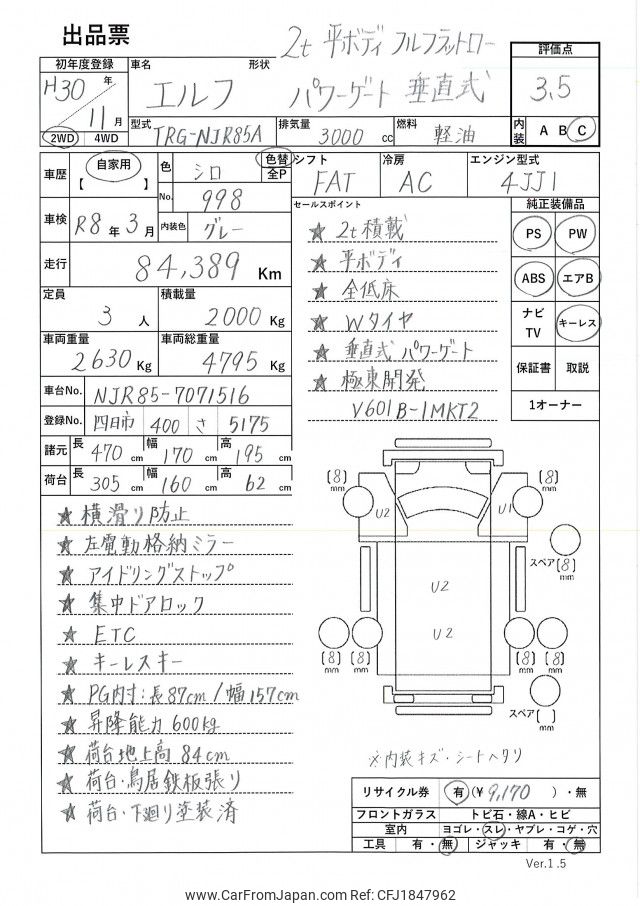 出品票
2t 平ボディ フルフラットロー
初年度登録 車名 形状 評価点
H30年11月 エルフ パワーゲート 垂直式 3.5
型式 排気量 燃料 内装
2WD 4WD TRG-NJR85A 3000 cc 軽油 A B C
車歴 自家用 【 】 色 シロ 色替 全P シフト FAT 冷房 AC エンジン型式 4JJ1
No. 998
車検 R8年3月 内装色 グレー
走行 84,389 Km
定員 3人 積載量 2000 Kg
車両重量 2630 Kg 車両総重量 4795 Kg
車台No. NJR85-7071516
登録No. 四日市 400 さ 5175
諸元 長 470 cm 幅 170 cm 高 195 cm
荷台 長 305 cm 幅 160 cm 高 62 cm
セールスポイント
★ 2t積載
★ 平ボディ
★ 全低床
★ Wタイヤ
★ 垂直式 パワーゲート
★ 極東開発
V601B-1MKT2
純正装備品
PS PW
ABS エアB
ナビ TV キーレス
保証書 取説
1オーナー
★ 横滑り防止
★ 左電動格納ミラー
★ アイドリングストップ
★ 集中ドアロック
★ ETC
★ キーレスキー
★ PG内寸:長87cm/幅157cm
★ 昇降能力600kg
★ 荷台地上高84cm
★ 荷台・鳥居鉄板張り
★ 荷台・下廻り塗装済
(8) mm (8) mm
U2 U1
スペア(8) mm
U2
U2
(8) mm (8) mm (8) mm (8) mm
スペア( ) mm
※内装キズ・シートヘタリ
リサイクル券 有(¥ 9,170 )・無
フロントガラス トビ石・線A・ヒビ
室内 ヨゴレ・スレ・ヤブレ・コゲ・穴
工具 有・無 ジャッキ 有・無
Ver.1.5
www.CarFromJapan.com Ref: CFJ1847962